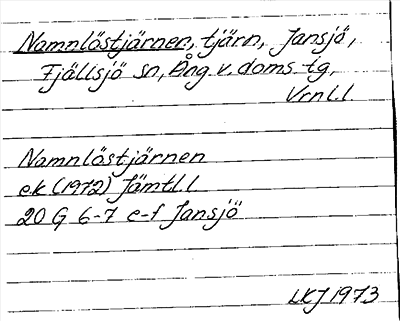 Namnlöstjärnen, tjärn, Jansjö,
Fjällsjö sn, Ång. v. doms. tg,
Vrnl.l.
Namnlöstjärnen
ek (1972) Jämtl.l
20 G 6-7 e-f Jansjö
LKJ 1973